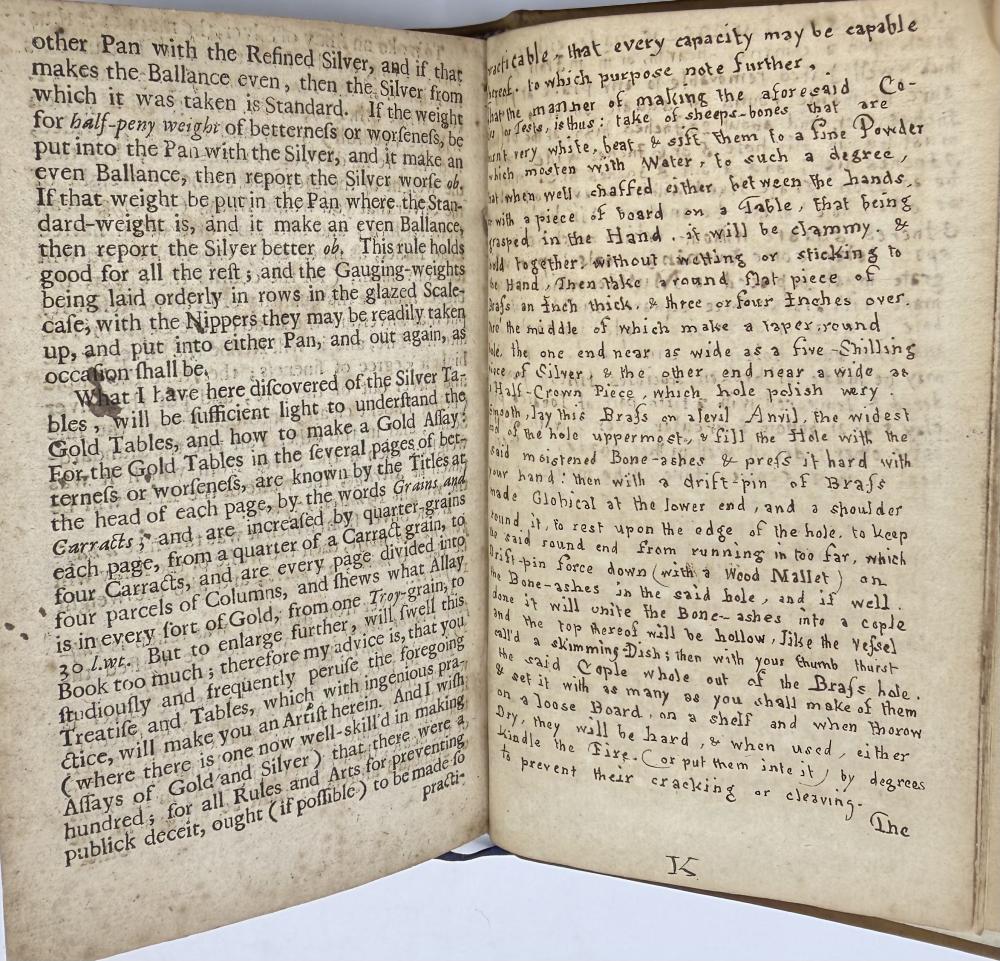 other Pan with the Refined Silver, and if that
makes the Ballance even, then the Silver from
which it was taken is Standard. If the weight
for half-peny weight of betterneſs or worſeneſs, be
put into the Pan with the Silver, and it make an
even Ballance, then report the Silver worſe ob.
If that weight be put in the Pan where the Stan-
dard-weight is, and it make an even Ballance,
then report the Silver better ob. This rule holds
good for all the reſt; and the Gauging-weights
being laid orderly in rows in the glazed Scale-
caſe, with the Nippers they may be readily taken
up, and put into either Pan, and out again, as
occaſion ſhall be.
What I have here diſcovered of the Silver Ta-
bles, will be ſufficient light to underſtand the
Gold Tables, and how to make a Gold Aſſay:
For the Gold Tables in the ſeveral pages of bet-
terneſs or worſeneſs, are known by the Titles at
the head of each page, by the words Grains and
Carracts; and are increaſed by quarter-grains
each page, from a quarter of a Carract grain, to
four Carracts, and are every page divided into
four parcels of Columns, and ſhews what Allay
is in every ſort of Gold, from one Troy-grain, to
30 l.wt. But to enlarge further, will ſwell this
Book too much; therefore my advice is, that you
ſtudiouſly and frequently peruſe the foregoing
Treatiſe and Tables, which with ingenious pra-
ctice, will make you an Artiſt herein. And I wiſh
(where there is one now well-skill'd in making
Aſſays of Gold and Silver) that there were a
hundred; for all Rules and Arts for preventing
publick deceit, ought (if poſſible) to be made ſo
practi-
racticable, that every capacity may be capable
hereof. to which purpose note further,
That the manner of making the aforesaid Co-
or Tests, is thus: take of sheeps-bones that are
burnt very white, beat & sift them to a fine Powder
which mosten with Water, to such a degree,
that when well chaffed either between the hands,
or with a piece of board on a Table, that being
grasped in the Hand. it will be clammy. &
hold together, without wetting or sticking to
the Hand, Then take a round flat piece of
Braſs an Inch thick, & three or four Inches over.
the middle of which make a taper, round
hole, the one end near as wide as a five-Shilling
Piece of Silver, & the other end near a wide as
Half-Crown Piece, which hole polish very
smooth, lay this Braſs on a levil Anvil, the widest
end of the hole uppermost, & fill the Hole with the
said moistened Bone-ashes & preſs it hard with
your hand: then with a drift-pin of Braſs
made Globical at the lower end, and a shoulder
round it, to rest upon the edge of the hole, to keep
the said round end from running in too far, which
Drift-pin force down (with a Wood Mallet) on
the Bone-ashes in the said hole, and if well
done it will unite the Bone-ashes into a cople
and the top thereof will be hollow, like the Veſsel
call'd a skimming-Dish; then with your thumb thurst
the said Cople whole out of the Braſs hole.
& set it with as many as you shall make of them
on a loose Board, on a shelf and when thorow
Dry, they will be hard, & when used, either
kindle the Fire. (or put them inte it) by degrees
to prevent their cracking or cleaving.
The
K